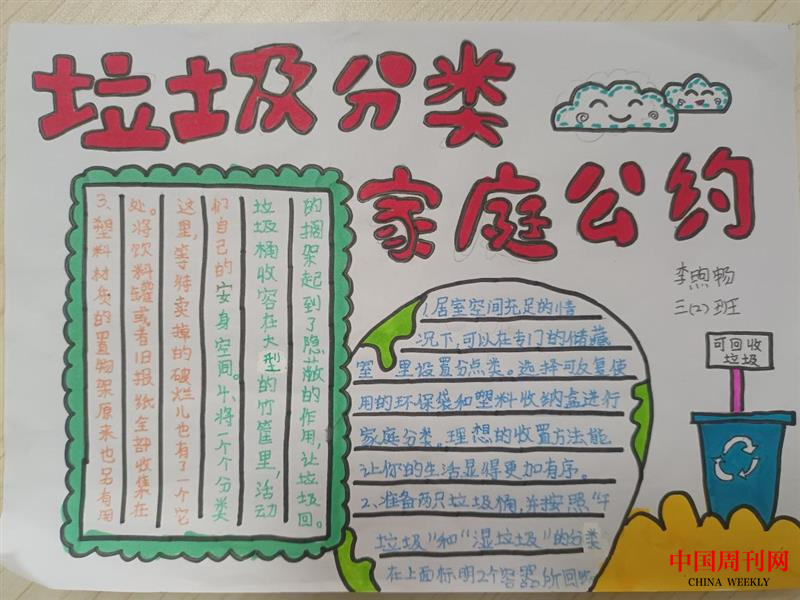 垃圾分类
家庭公约
李煦畅
三(2)班
可回收
垃圾
1.居室空间充足的情
况下,可以在专门的储藏
室里设置分点类。选择可反复使
用的环保袋和塑料收纳盒进行
家庭分类。理想的收置方法能
让你的生活显得更加有序。
2、准备两只垃圾桶,并按照“干
垃圾”和“湿垃圾”的分类
在上面标明2个容器所回
3、塑料材质的置物架原来也另有用
处。将饮料罐或者旧报纸全部收集在
这里,等待卖掉的破烂儿也有了一个它
们自己的安身空间。4、将一个个分类
垃圾桶收容在大型的竹筐里,活动
的搁架起到了隐蔽的作用,让垃圾回。
中国周刊网
CHINA WEEKLY